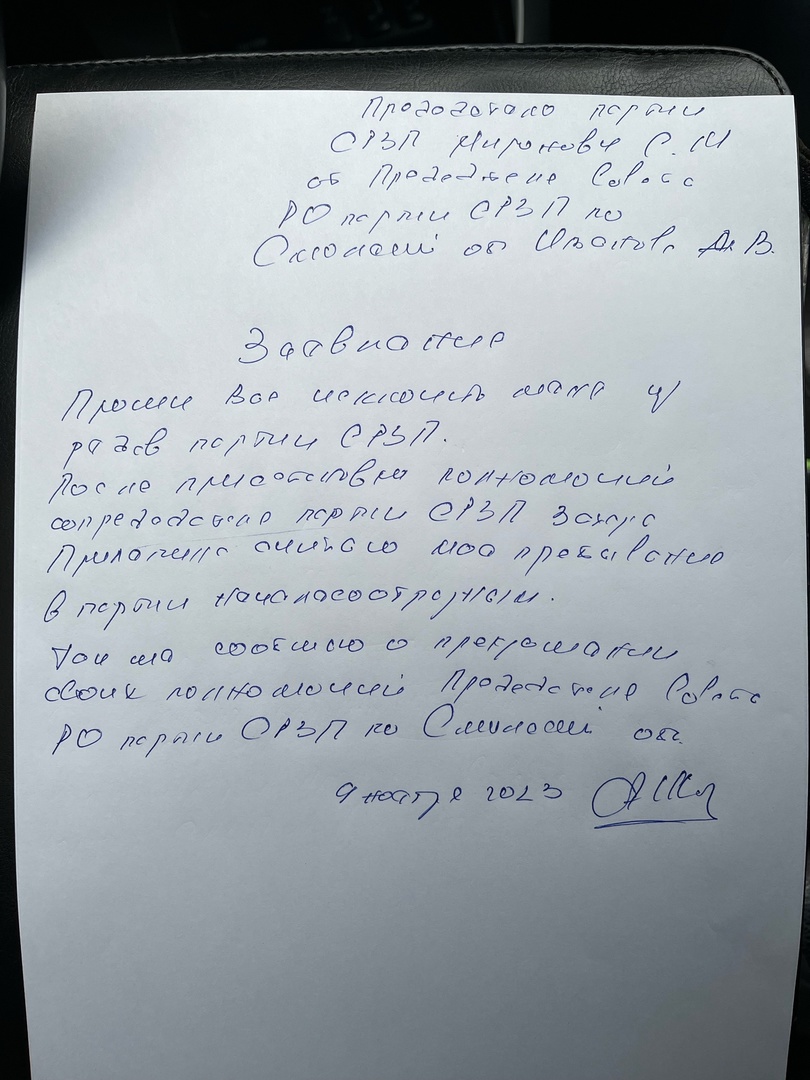 Председателю партии
СРЗП Миронову С. М
от Председателя Совета
РО партии СРЗП по
Смоленской обл Иванова А. В.
Заявление
Прошу Вас исключить меня из
рядов партии СРЗП.
После приостановки полномочий
сопредседателя партии СРЗП Захара
Прилепина считаю мое пребывание
в партии нецелесообразным.
Так же сообщаю о прекращении
своих полномочий Председателя Совета
РО партии СРЗП по Смоленской обл.
9 ноября 2023